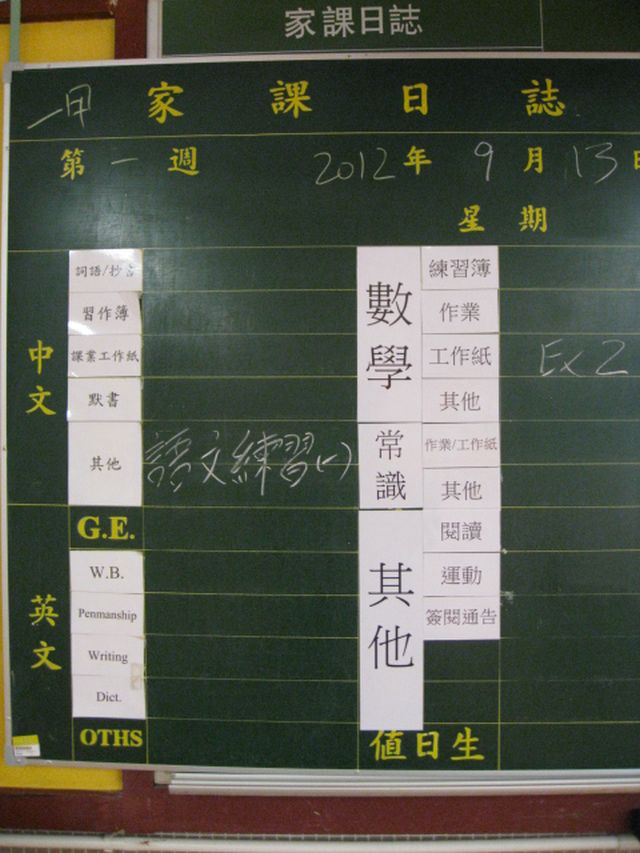 家課日誌
一甲 家課日誌
第一週 2012年9月13日
星期
中文
詞語/抄書
習作簿
課業工作紙
默書
其他 語文練習(一)
英文
G.E.
W.B.
Penmanship
Writing
Dict.
OTHS
數學
練習簿
作業
工作紙 Ex 2
其他
常識
作業/工作紙
其他
其他
閱讀
運動
簽閱通告
值日生